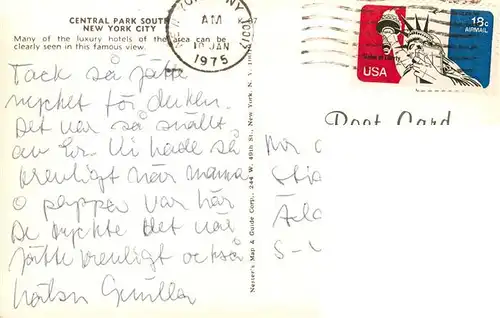 CENTRAL PARK SOUTH
NEW YORK CITY
Many of the luxury hotels of the area can be
clearly seen in this famous view.
Tack så jätte
mycket för duken.
Det var så snällt
av Er. Vi hade så
trevligt när mamma
o pappa var här
De tyckte det var
jätte trevligt också
hälsn Gunilla
Nester's Map & Guide Corp., 244 W. 49th St., New York, N. Y.
NY
AM
10 JAN
1975
18c
AIRMAIL
Statue of Liberty
USA
Post Card
S-